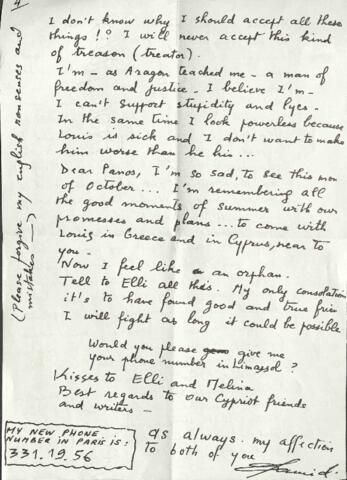 4
I don't know why I should accept all these
things!? I will never accept this kind
of treason (treator).
I'm - as Aragon teached me - a man of
freedom and justice. I believe I'm -
I can't support stupidity and lyes -
In the same time I look powerless because
Louis is sick and I don't want to make
him worse than he his...
Dear Panos, I'm so sad, to see this mon
of October... I'm remembering all
the good moments of summer with our
promesses and plans... to come with
Louis in Greece and in Cyprus, near to
you -
Now I feel like an orphan.
Tell to Elli all this. My only consolation
it's to have found good and true frien
I will fight as long it could be possible
Would you please give me
your phone number in Limassol?
Kisses to Elli and Melina
Best regards to our Cypriot friends
and writers -
as always my affection
to both of you
MY NEW PHONE
NUMBER IN PARIS IS:
331.19.56
(Please forgive my english nonsenses and
mistakes -)